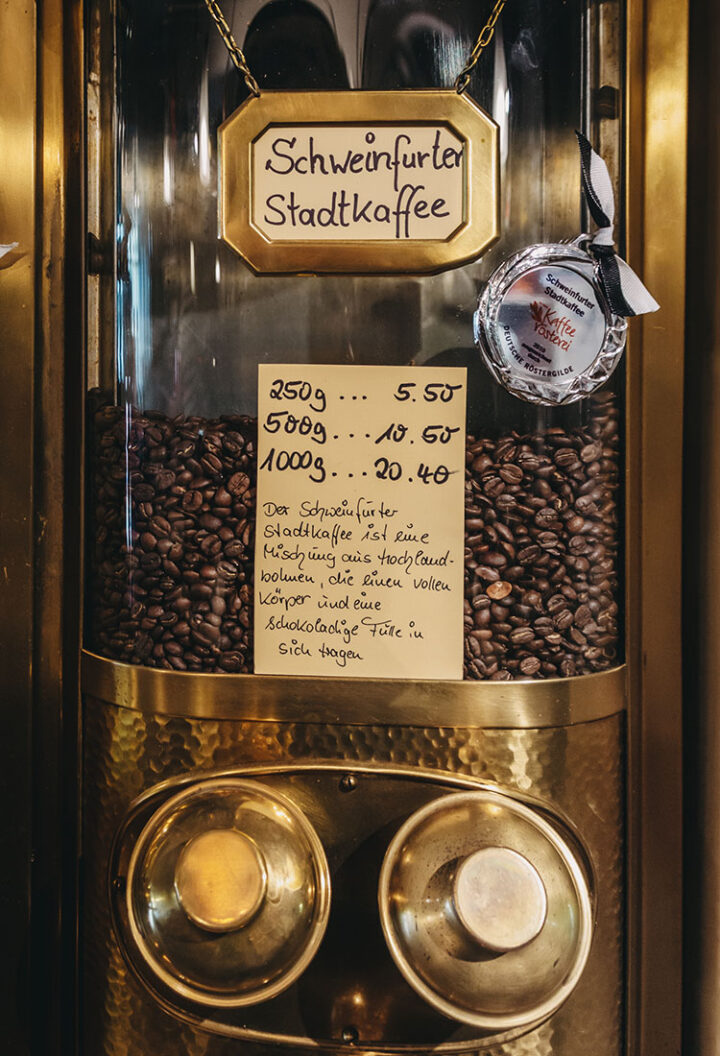 Schweinfurter
Stadtkaffee
Schweinfurter
Stadtkaffee
Kaffee
rösterei
DEUTSCHE RÖSTERGILDE
250g ... 5.50
500g ... 10.50
1000g ... 20.40
Der Schweinfurter
Stadtkaffee ist eine
Mischung aus Hochland-
bohnen, die einen vollen
Körper und eine
schokoladige Fülle in
sich tragen